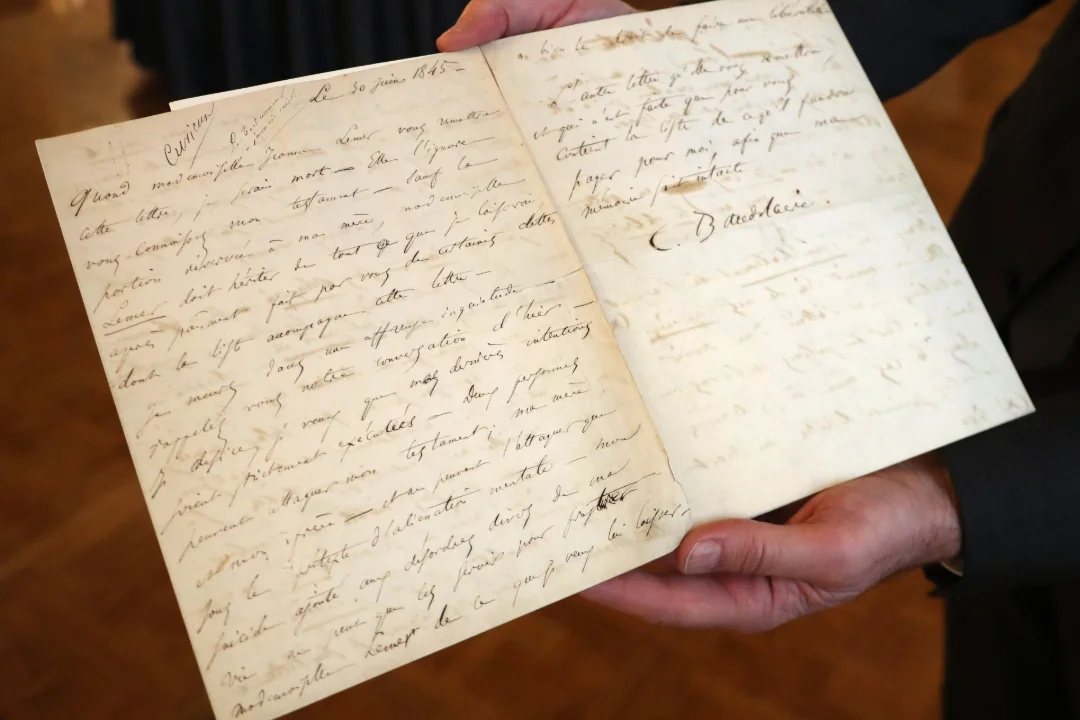 Le 30 juin 1845 –
Quand mademoiselle Jeanne Lemer vous remettra
cette lettre, je serai mort – Elle l'ignore
vous connaissez mon testament – Sauf la
portion réservée à ma mère, mademoiselle
Lemer doit hériter de tout ce que je laisserai,
après paiement fait par vous de certaines dettes
dont la liste accompagne cette lettre –
Je meurs dans une affreuse inquiétude –
rappelez vous notre conversation d'hier –
Je désire, je veux que mes dernières intentions
soient strictement exécutées – Deux personnes
peuvent attaquer mon testament; ma mère,
et mon frère – et ne peuvent l'attaquer que
sous le prétexte d'aliénation mentale – mon
suicide ajouté aux désordres divers de ma
vie ne peut que les servir pour frustrer
mademoiselle Lemer de ce que je veux lui laisser.
autre lettre qu'elle vous remettra
et qui n'est faite que pour vous
contient la liste de ce qu'il faudra
payer pour moi, afin que ma
mémoire soit intacte
C. Baudelaire.